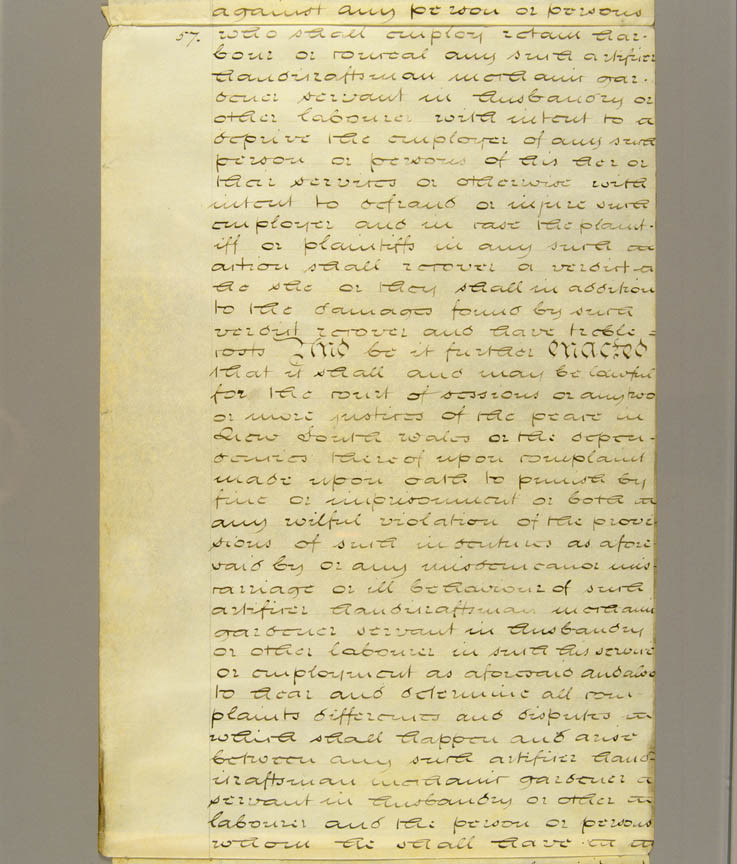 against any person or persons
57. who shall employ retain har-
bour or conceal any such artificer
handicraftsman mechanic gar-
dener servant in husbandry or
other labourer with intent to
deprive the employer of any such
person or persons of his her or
their services or otherwise with
intent to defraud or injure such
employer and in case the plaint-
iff or plaintiffs in any such
action shall recover a verdict
he she or they shall in addition
to the damages found by such
verdict recover and have treble
costs And be it further enacted
that it shall and may be lawful
for the court of sessions or any two
or more justices of the peace in
New South Wales or the depen-
dencies thereof upon complaint
made upon oath to punish by
fine or imprisonment or both
any wilful violation of the provi
sions of such indentures as afore
said by or any misdemeanor mis
carriage or ill behaviour of such
artificer handicraftsman mechanic
gardener servant in husbandry
or other labourer in such his service
or employment as aforesaid and also
to hear and determine all com-
plaints differences and disputes
which shall happen and arise
between any such artificer hand-
icraftsman mechanic gardener
servant in husbandry or other
labourer and the person or persons
whom he shall have